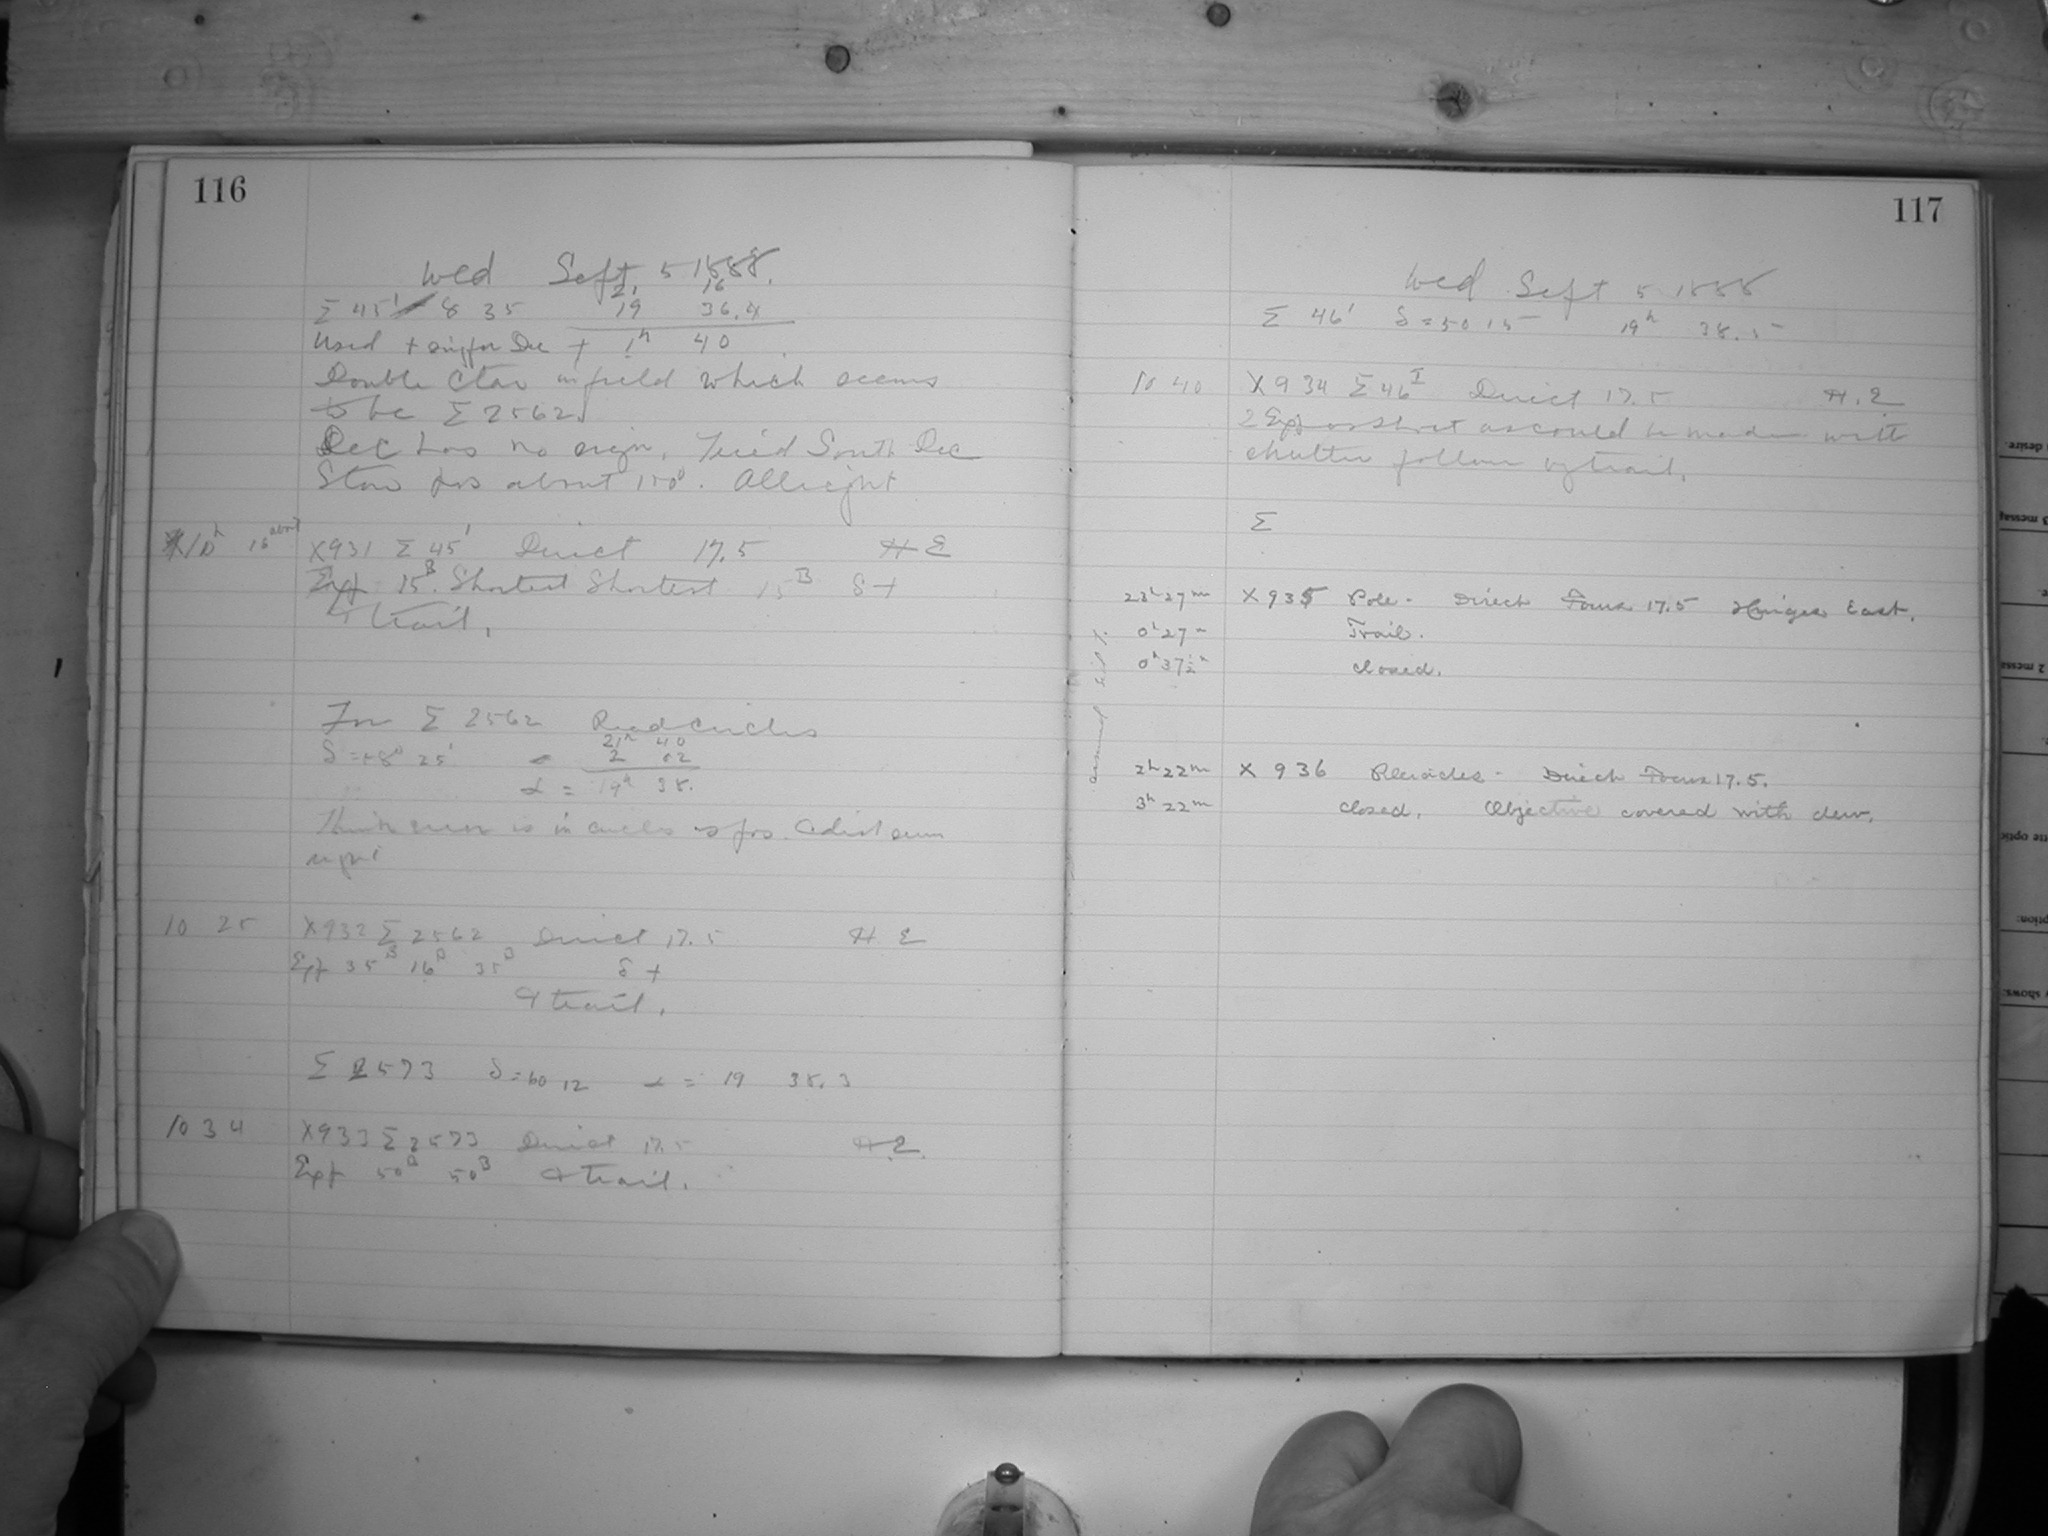 116
Wed Sept 5 1888.
21 16
Σ 45' 8 35 19 36.4
Used + sign for Dec + 1h 40
Double Star in field which seems
to be Σ 2562
Dec has no sign. Tried South Dec
Stars for about 150°. Allright
10h 16 about X931 Σ 45' Direct 17.5 H E
Exp 15B. Shortest Shortest 15B δ +
& trail.
For Σ 2562 Read circles
21h 40
δ = +8° 25' - 2 02
α = 19h 38.
Think error is in circles
10 25 X932 Σ 2562 Direct 17.5 H E
Exp 35B 16B 35B δ +
& trail.
Σ 2573 δ = 60 12 α = 19 38.3
10 34 X933 Σ 2573 Direct 17.5 H.E.
Exp 50B 50B & trail.
117
Wed Sept 5 1888
Σ 46' δ = 50 15 19h 38.5
10 40 X934 Σ 46I Direct 17.5 H.E
2 Exp as short as could be made with
shutter follow by trail.
Σ
23h 27m X935 Pole - Direct Focus 17.5 Hinges East.
0h 27m Trail.
0h 37½m closed.
2h 22m X 936 Pleiades - Direct Focus 17.5.
3h 22m closed. Objective covered with dew.